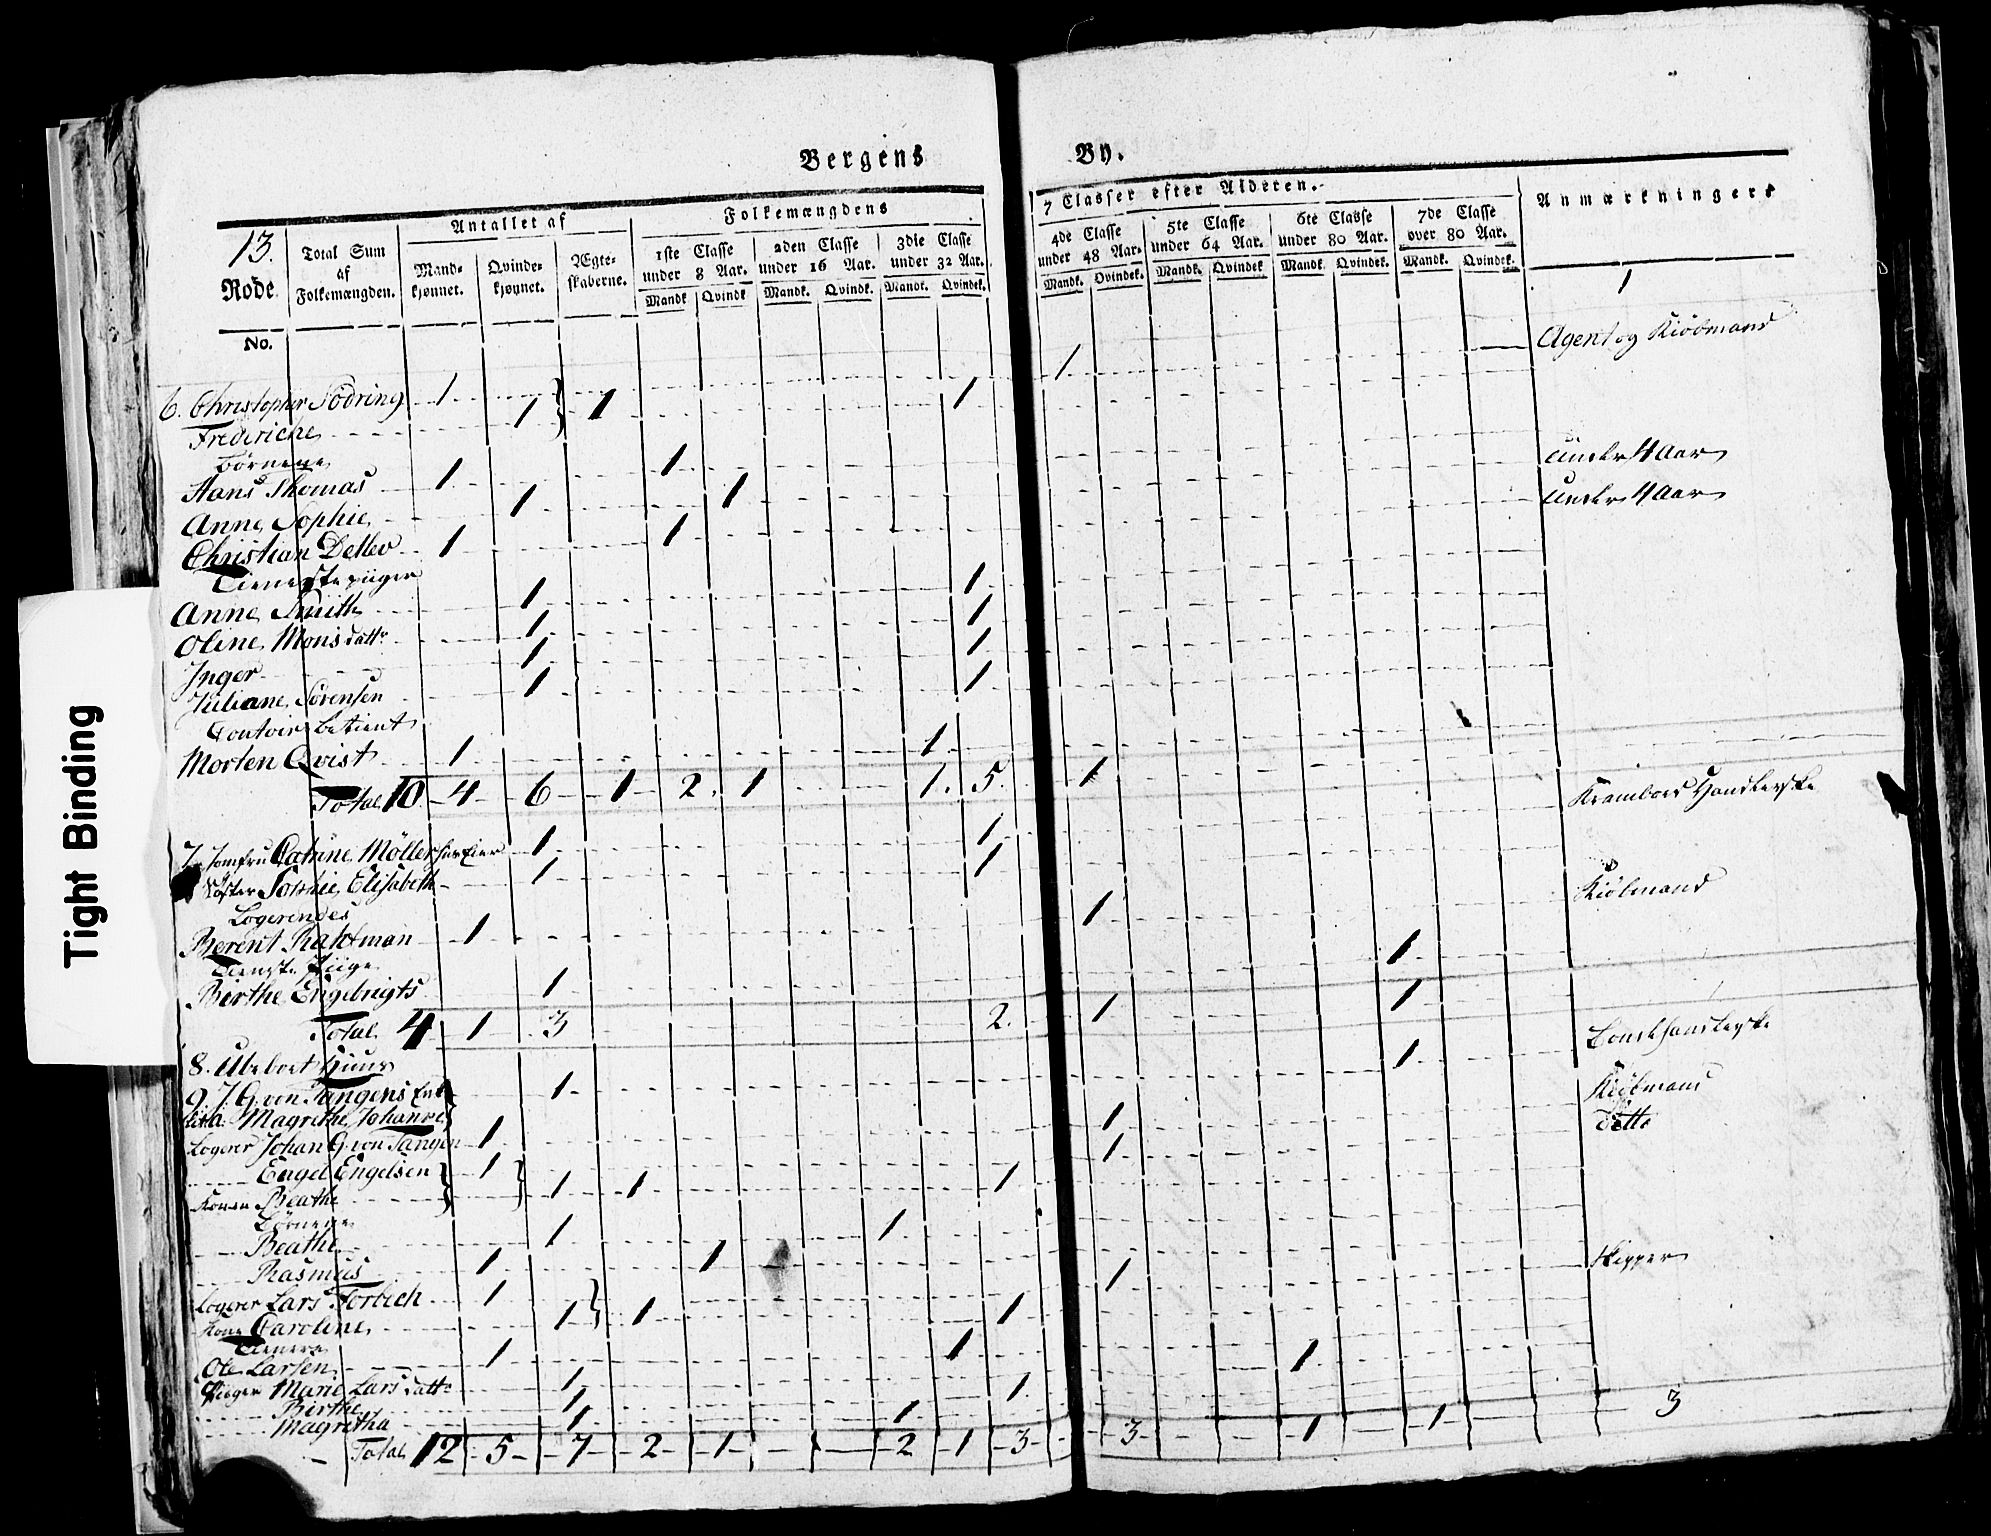 Tight Binding
Bergens By.
13.
Rode
No.
Total Sum
af
Folkemængden.
Antallet af
Mand-
kjønnet.
Qvinde-
kjønnet.
Ægte-
skaberne.
Folkemængdens 7 Classer efter Alderen.
1ste Classe
under 8 Aar.
Mandk Qvindk
2den Classe
under 16 Aar.
Mandk. Qvindk.
3die Classe
under 32 Aar.
Mandk. Qvindek.
4de Classe
under 48 Aar.
Mandk. Qvindek.
5te Classe
under 64 Aar.
Mandk. Qvindek
6te Classe
under 80 Aar.
Mandk. Qvindek.
7de Classe
over 80 Aar.
Mandk. Qvindek.
Anmærkninger
6. Christopher Södring 1 1 1 Agent og Kiöbmand
Frederiche 1 1
Börnene
Hans Thomas 1 1 under 4 Aar
Anne Sophie 1 1 under 4 Aar
Christian Detlev 1 1
Tieneste piiger
Anne Smith 1 1
Oline Mons datt 1 1
Inger 1 1
Juliane Sörensen 1 1
Contoir betient
Morten Qvist 1 1
Total 10 4 6 1 2 1 1 5 1
7. Jomfru Catrine Möller 1 1 Kramboed Handlerske
Söster Sophie Elisabeth 1 1
Logerendes
Berent Rahtman 1 1 Kiöbmand
Tieneste Piige
Birthe Engebrigts 1 1
Total 4 1 3 2 1 1
8.
9. J. G. von Tangens Enke 1 1
Magrethe Johanne
Logerer Johan G. von Tangen 1 1 Kiöbmand
Engel Engelsen 1 1 ditto
Konen Beathe 1 1 1
Börnene
Beathe 1 1
Rasmus 1 1
Logerer Lars 1 1 Skipper
Kone Caroline 1 1 1
Tienere
Ole Larsen 1 1
Piiger Marie Lars datt 1 1
Birthe 1 1
Magretha 1 1
Total 12 5 7 2 1 2 1 3 3 1 1 3